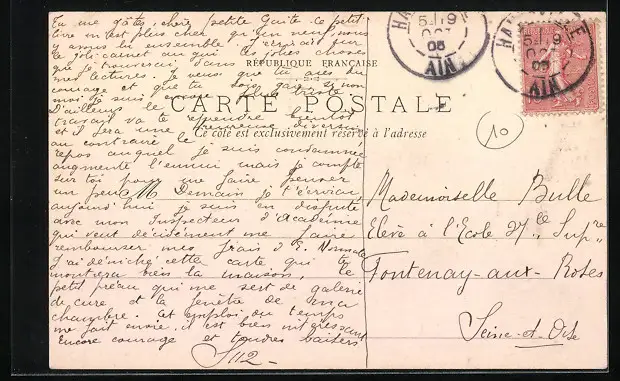 Tu me gâtes, chère petite Guite. Ce petit
livre m'est plus cher qu'un neuf, nous
y avons lu ensemble. J'écrirai sur
le joli carnet au gui les jolies choses
que je trouverai dans
mes lectures. Je veux que tu aies du
courage et que tu sois gaie, si non
moi je suis
D'ailleurs le
travail va te reprendre bientôt
et il sera une heureuse diversion
au contraire le
repos auquel je suis condamnée
augmente l'ennui mais je compte
sur toi pour me faire penser
un peu. Demain je t'écrirai
aujourd'hui je suis en dispute
avec mon Inspecteur d'Académie
qui veut décidément me faire
rembourser mes frais d'E. Normale
J'ai déniché cette carte qui te
montrera bien la maison, le
petit préau qui me sert de galerie
de cure et la fenêtre de ma
chambre. Cet emploi du temps
me fait envie, il est bien intéressant
Encore courage et tendres baisers
RÉPUBLIQUE FRANÇAISE
CARTE POSTALE
Ce côté est exclusivement réservé à l'adresse
5 19
OCT
05
AIN
HAUTEVILLE
5 19
OCT
05
AIN
10
Mademoiselle Bulle
Elève à l'Ecole N^le Sup^re
Fontenay-aux-Roses
Seine-et-Oise